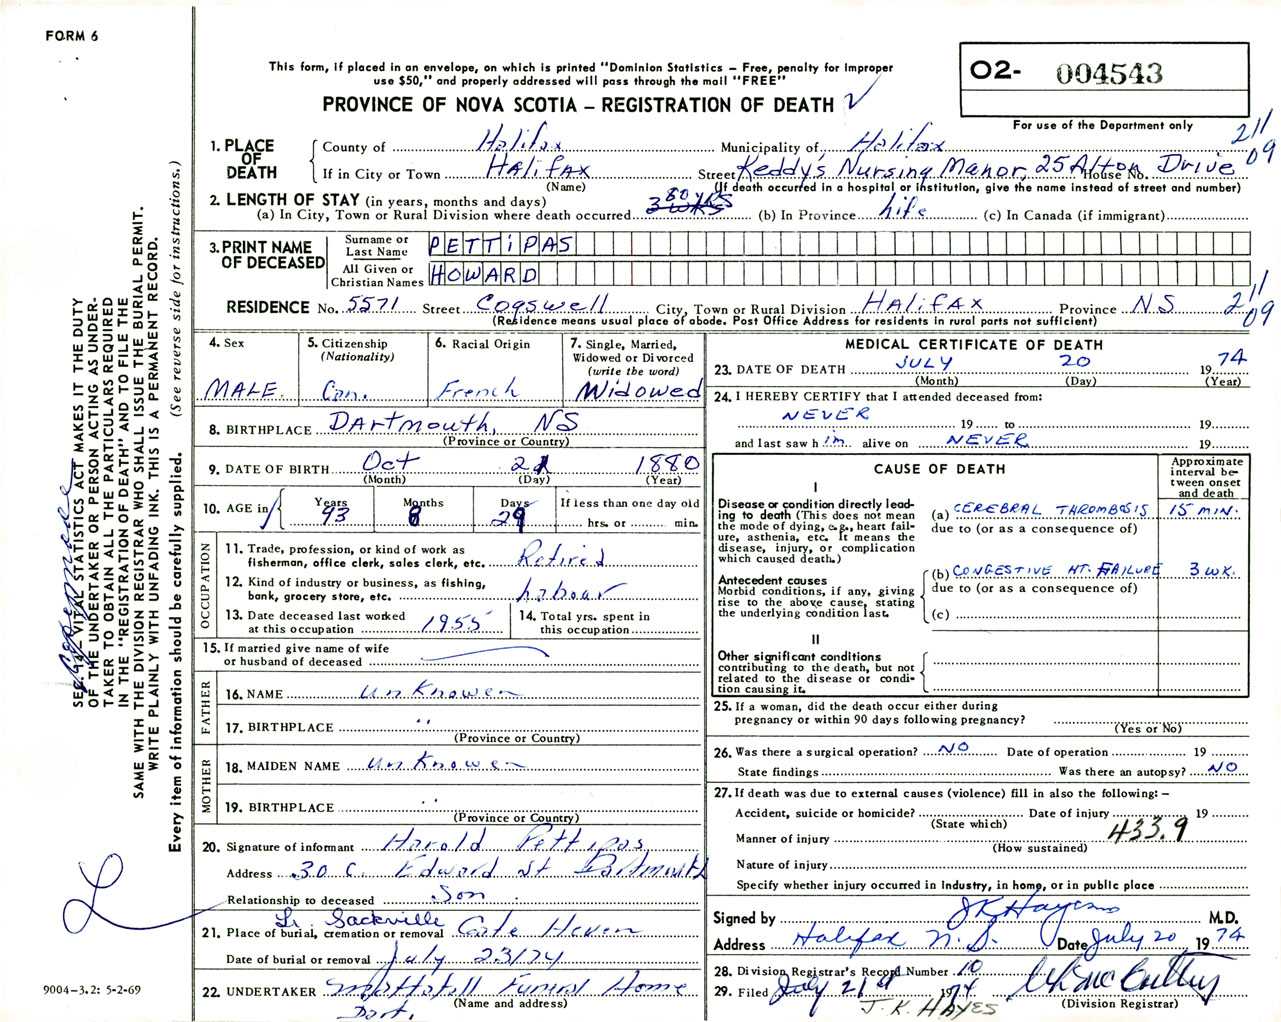 FORM 6
This form, if placed in an envelope, on which is printed "Dominion Statistics – Free, penalty for improper
use $50," and properly addressed will pass through the mail "FREE"
PROVINCE OF NOVA SCOTIA – REGISTRATION OF DEATH
O2- 004543
For use of the Department only
211
09
1. PLACE OF DEATH
County of Halifax Municipality of Halifax
If in City or Town HALIFAX Street Keddy's Nursing Manor, 25 Alton Drive House No.
(Name) (If death occurred in a hospital or institution, give the name instead of street and number)
2. LENGTH OF STAY (in years, months and days)
(a) In City, Town or Rural Division where death occurred 3 WKS 80 YRS (b) In Province Life (c) In Canada (if immigrant)
3. PRINT NAME OF DECEASED
Surname or Last Name PETTIPAS
All Given or Christian Names HOWARD
RESIDENCE No. 5571 Street Cogswell City, Town or Rural Division HALIFAX Province NS
211
09
(Residence means usual place of abode. Post Office Address for residents in rural parts not sufficient)
4. Sex
MALE.
5. Citizenship
(Nationality)
Can.
6. Racial Origin
French
7. Single, Married,
Widowed or Divorced
(write the word)
Widowed
8. BIRTHPLACE Dartmouth, NS
(Province or Country)
9. DATE OF BIRTH Oct 21 1880
(Month) (Day) (Year)
10. AGE in Years Months Days If less than one day old
93 8 29 hrs. or min.
OCCUPATION
11. Trade, profession, or kind of work as
fisherman, office clerk, sales clerk, etc. Retired
12. Kind of industry or business, as fishing,
bank, grocery store, etc. Labour
13. Date deceased last worked
at this occupation 1955
14. Total yrs. spent in
this occupation
15. If married give name of wife
or husband of deceased
FATHER
16. NAME unKnowen
17. BIRTHPLACE ''
(Province or Country)
MOTHER
18. MAIDEN NAME unKnowen
19. BIRTHPLACE ''
(Province or Country)
20. Signature of informant Harold Pettipas
Address 30 C. Edward St Dartmouth
Relationship to deceased Son
Lr. Sackville
21. Place of burial, cremation or removal Gate Heven
Date of burial or removal July 23/74
22. UNDERTAKER Mattatall Funeral Home
(Name and address)
Dart.
MEDICAL CERTIFICATE OF DEATH
23. DATE OF DEATH JULY 20 1974
(Month) (Day) (Year)
24. I HEREBY CERTIFY that I attended deceased from:
NEVER 19 to 19
and last saw h im alive on NEVER 19
CAUSE OF DEATH
Approximate
interval be-
tween onset
and death
I
Disease or condition directly lead-
ing to death (This does not mean
the mode of dying, e.g., heart fail-
ure, asthenia, etc. It means the
disease, injury, or complication
which caused death.)
(a) CEREBRAL THROMBOSIS 15 MIN.
due to (or as a consequence of)
Antecedent causes
Morbid conditions, if any, giving
rise to the above cause, stating
the underlying condition last.
(b) CONGESTIVE HT. FAILURE 3 WK.
due to (or as a consequence of)
(c)
II
Other significant conditions
contributing to the death, but not
related to the disease or condi-
tion causing it.
25. If a woman, did the death occur either during
pregnancy or within 90 days following pregnancy?
(Yes or No)
26. Was there a surgical operation? NO Date of operation 19
State findings Was there an autopsy? NO
27. If death was due to external causes (violence) fill in also the following: –
Accident, suicide or homicide? Date of injury 19
(State which)
433.9
Manner of injury
(How sustained)
Nature of injury
Specify whether injury occurred in Industry, in home, or in public place
Signed by JK Hayes M.D.
Address Halifax N.S. Date July 20 1974
28. Division Registrar's Record Number 10
29. Filed July 21st 1974
(Division Registrar)
J.K. HAYES
SEC. 14 – VITAL STATISTICS ACT MAKES IT THE DUTY
OF THE UNDERTAKER OR PERSON ACTING AS UNDER-
TAKER TO OBTAIN ALL THE PARTICULARS REQUIRED
IN THE "REGISTRATION OF DEATH" AND TO FILE THE
SAME WITH THE DIVISION REGISTRAR WHO SHALL ISSUE THE BURIAL PERMIT.
WRITE PLAINLY WITH UNFADING INK. THIS IS A PERMANENT RECORD.
Every item of information should be carefully supplied. (See reverse side for instructions.)
9004-3.2: 5-2-69